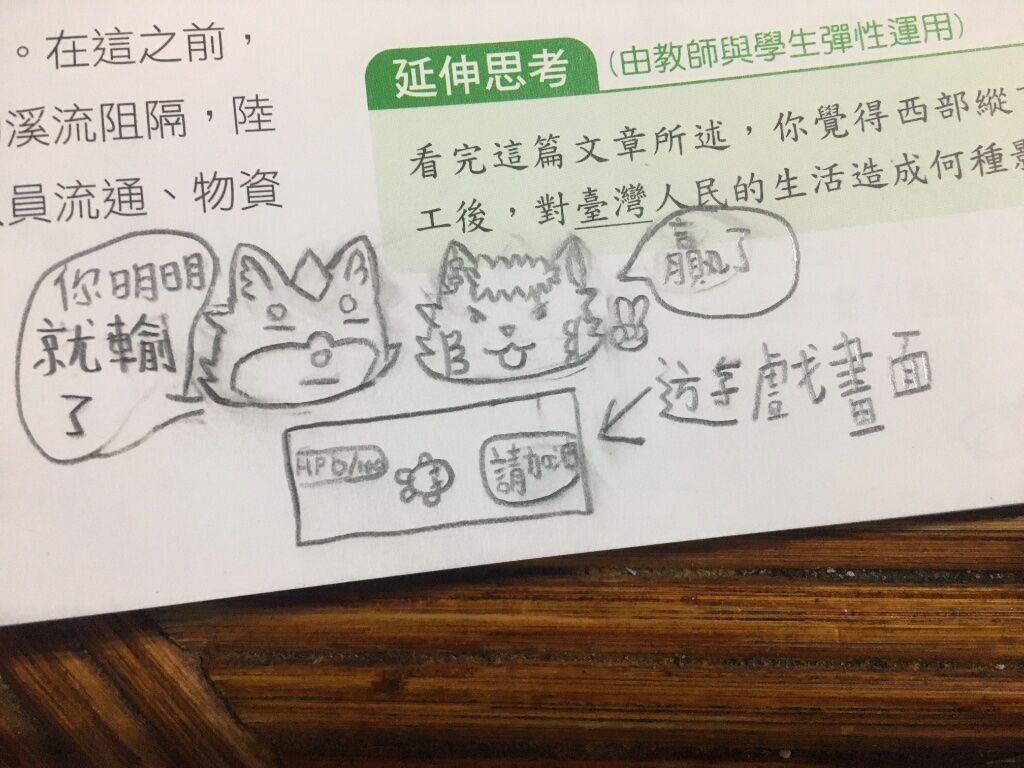 。在這之前，
溪流阻隔，陸
員流通、物資
延伸思考
(由教師與學生彈性運用)
看完這篇文章所述，你覺得西部縱
工後，對臺灣人民的生活造成何種
你明明
就輸
了
贏了
遊戲畫面
HP 0/100
請加油